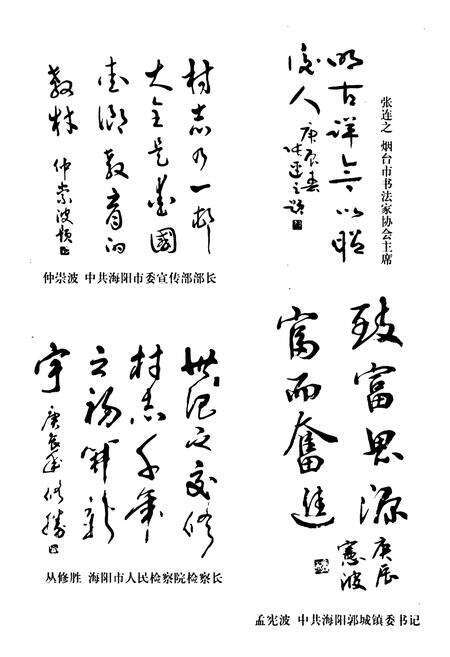 明古详今以昭
後人
庚辰春
连之题
张连之 烟台市书法家协会主席
村志乃一部
大全是爱國
爱乡教育的
教材
仲崇波题
仲崇波 中共海阳市委宣传部部长
致富思源
富而奮進
庚辰
憲波
孟宪波 中共海阳郭城镇委书记
世纪之交修
村志千年
之初开新
宇
庚辰年修勝
丛修胜 海阳市人民检察院检察长